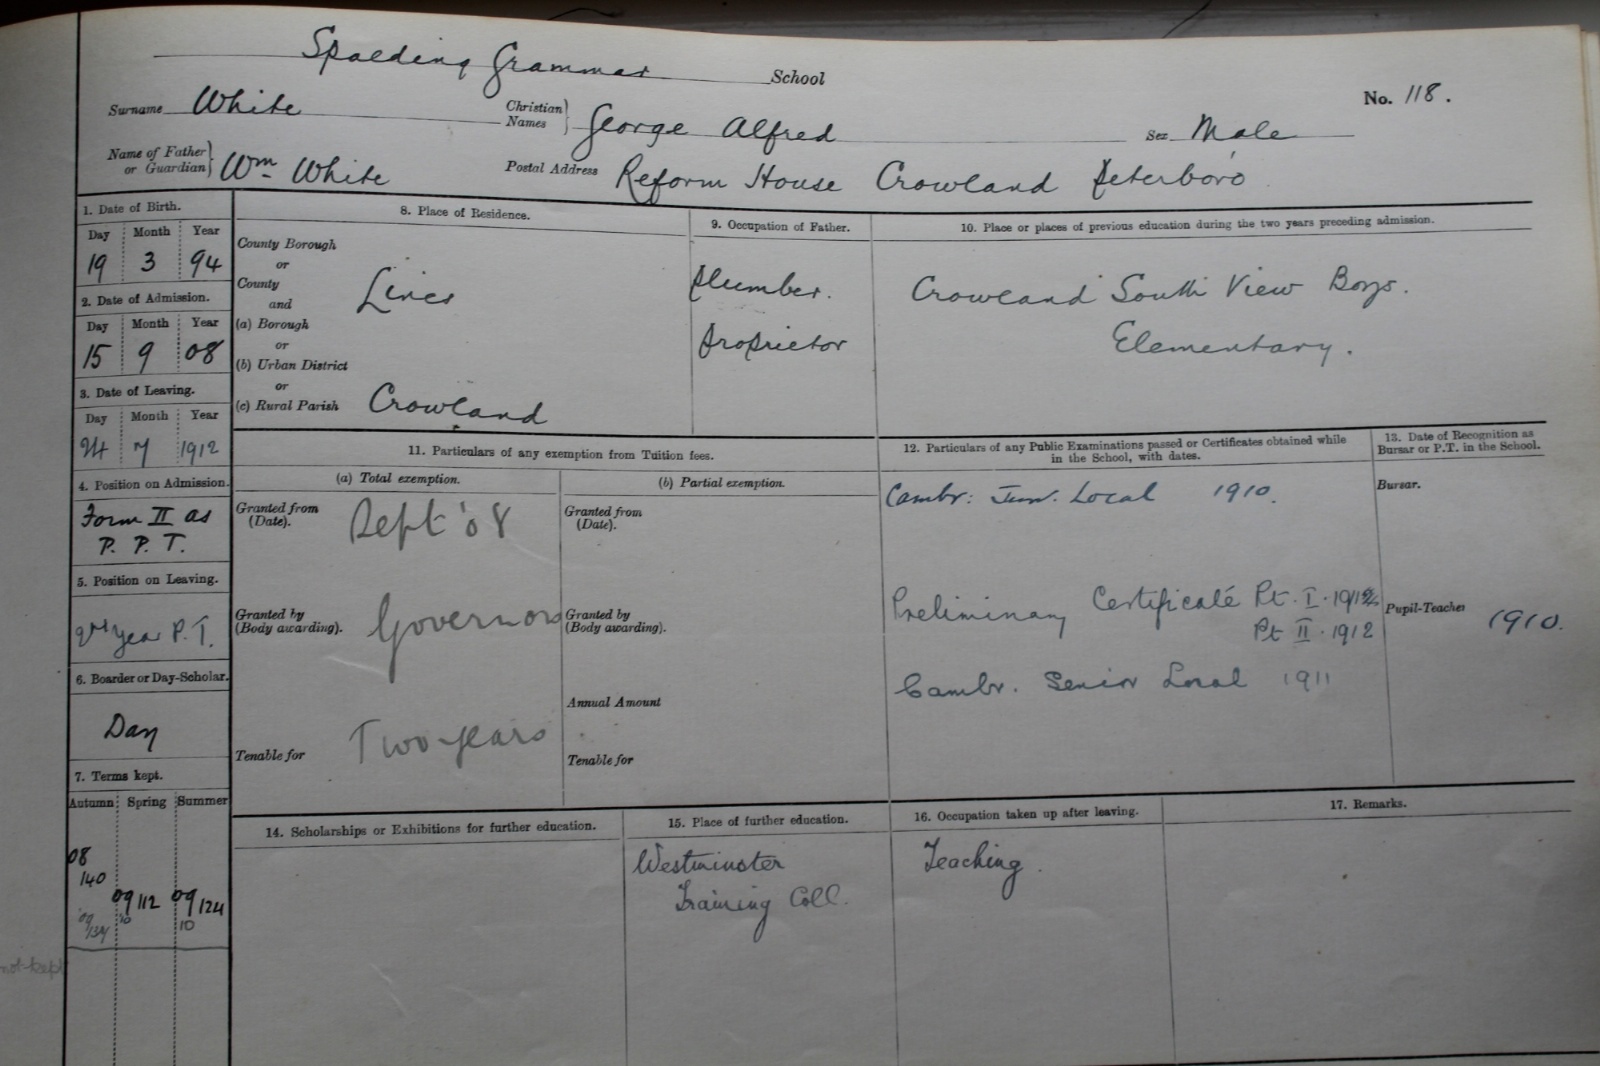 Spalding Grammar School
No. 118.
Surname White Christian Names George Alfred Sex Male
Name of Father or Guardian Wm White Postal Address Reform House Crowland Peterboro
1. Date of Birth.
Day Month Year
19 3 94
2. Date of Admission.
Day Month Year
15 9 08
3. Date of Leaving.
Day Month Year
24 7 1912
4. Position on Admission.
Form II as
P. P. T.
5. Position on Leaving.
2nd year P.T.
6. Boarder or Day-Scholar.
Day
7. Terms kept.
Autumn Spring Summer
08
140
09 112 09 124
'09 10 10
134
not kept
8. Place of Residence.
County Borough
or
County
and
Lincs
(a) Borough
or
(b) Urban District
or
(c) Rural Parish Crowland
9. Occupation of Father.
Plumber.
Proprietor
10. Place or places of previous education during the two years preceding admission.
Crowland South View Boys.
Elementary.
11. Particulars of any exemption from Tuition fees.
(a) Total exemption.
Granted from
(Date).
Sept '08
Granted by
(Body awarding).
Governors
Tenable for Two years
(b) Partial exemption.
Granted from
(Date).
Granted by
(Body awarding).
Annual Amount
Tenable for
12. Particulars of any Public Examinations passed or Certificates obtained while
in the School, with dates.
Cambr: Jun. Local 1910.
Preliminary Certificate Pt. I. 1912
Pt II. 1912
Cambr. Senior Local 1911
13. Date of Recognition as
Bursar or P.T. in the School.
Bursar.
Pupil-Teacher 1910.
14. Scholarships or Exhibitions for further education.
15. Place of further education.
Westminster
Training Coll.
16. Occupation taken up after leaving.
Teaching.
17. Remarks.